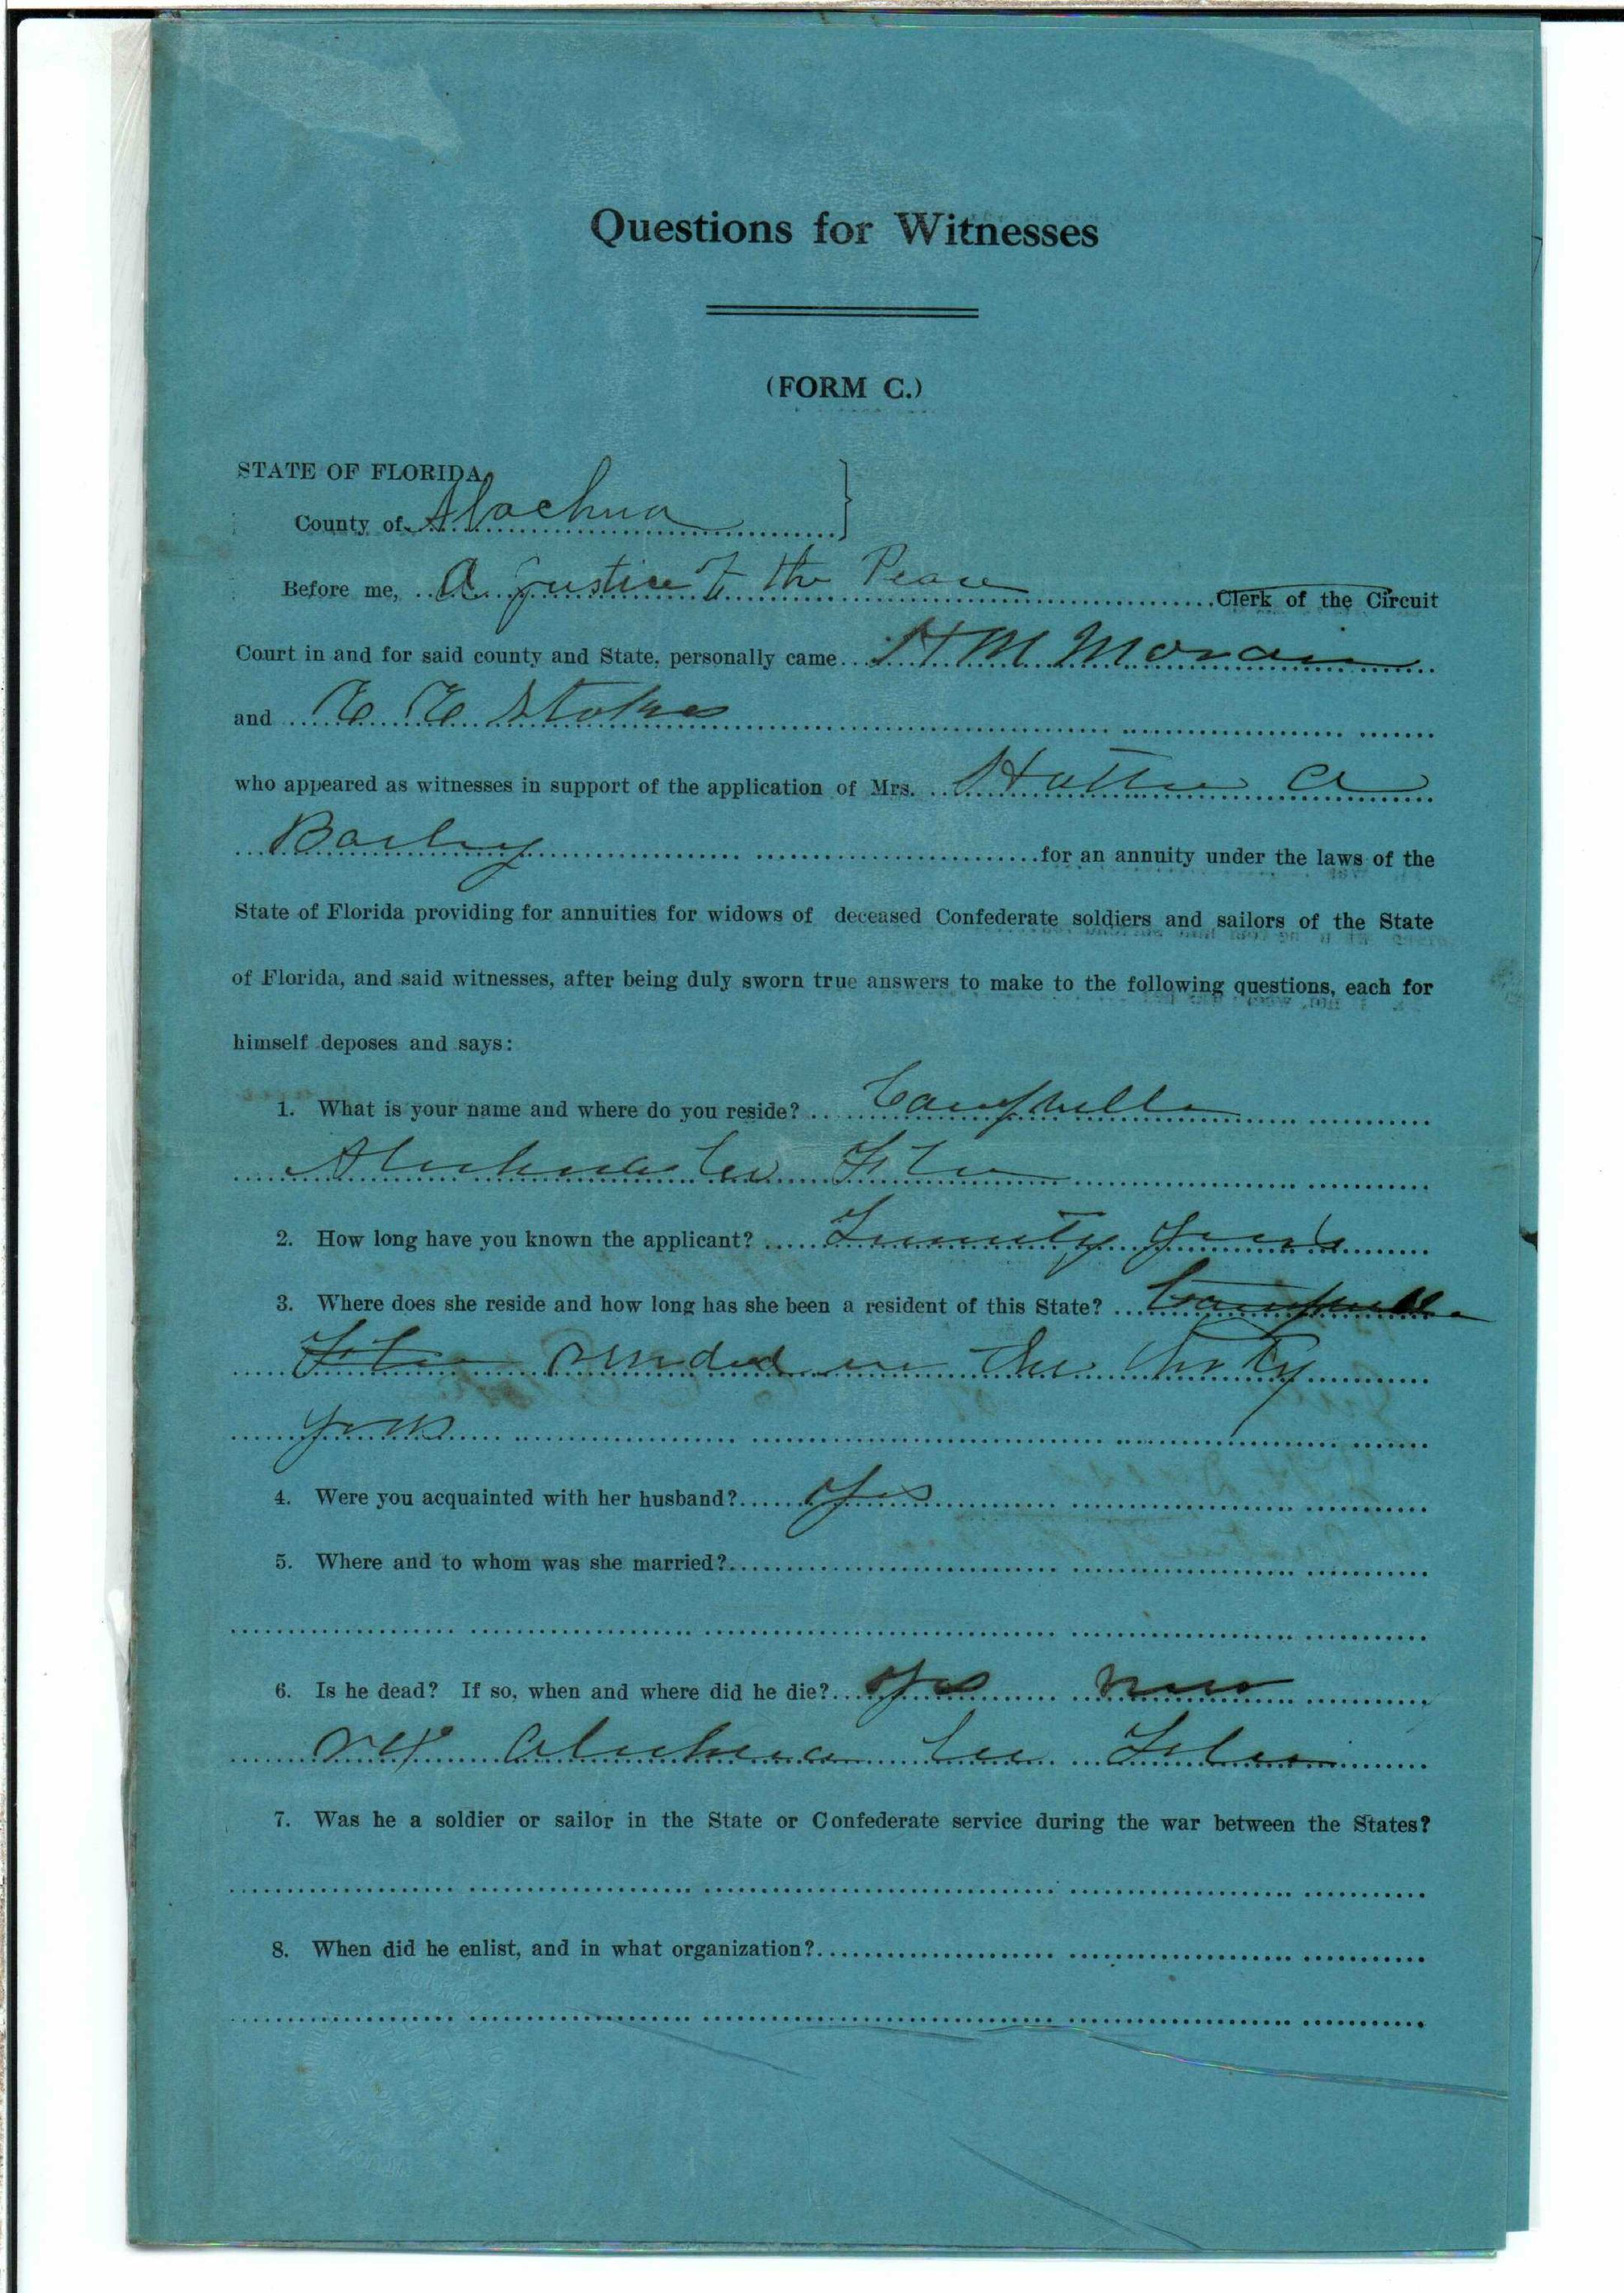 Questions for Witnesses
(FORM C.)
STATE OF FLORIDA,
County of Alachua
Before me, A Justice of the Peace Clerk of the Circuit
Court in and for said county and State, personally came H M
and Stokes
who appeared as witnesses in support of the application of Mrs. Hattie A
for an annuity under the laws of the
State of Florida providing for annuities for widows of deceased Confederate soldiers and sailors of the State
of Florida, and said witnesses, after being duly sworn true answers to make to the following questions, each for
himself deposes and says:
1. What is your name and where do you reside? Campville
Alachua Co Fla
2. How long have you known the applicant? Twenty years
3. Where does she reside and how long has she been a resident of this State? Campville
Fla resided in the thirty
years
4. Were you acquainted with her husband? yes
5. Where and to whom was she married?
6. Is he dead? If so, when and where did he die? yes
Alachua Co Fla
7. Was he a soldier or sailor in the State or Confederate service during the war between the States?
8. When did he enlist, and in what organization?